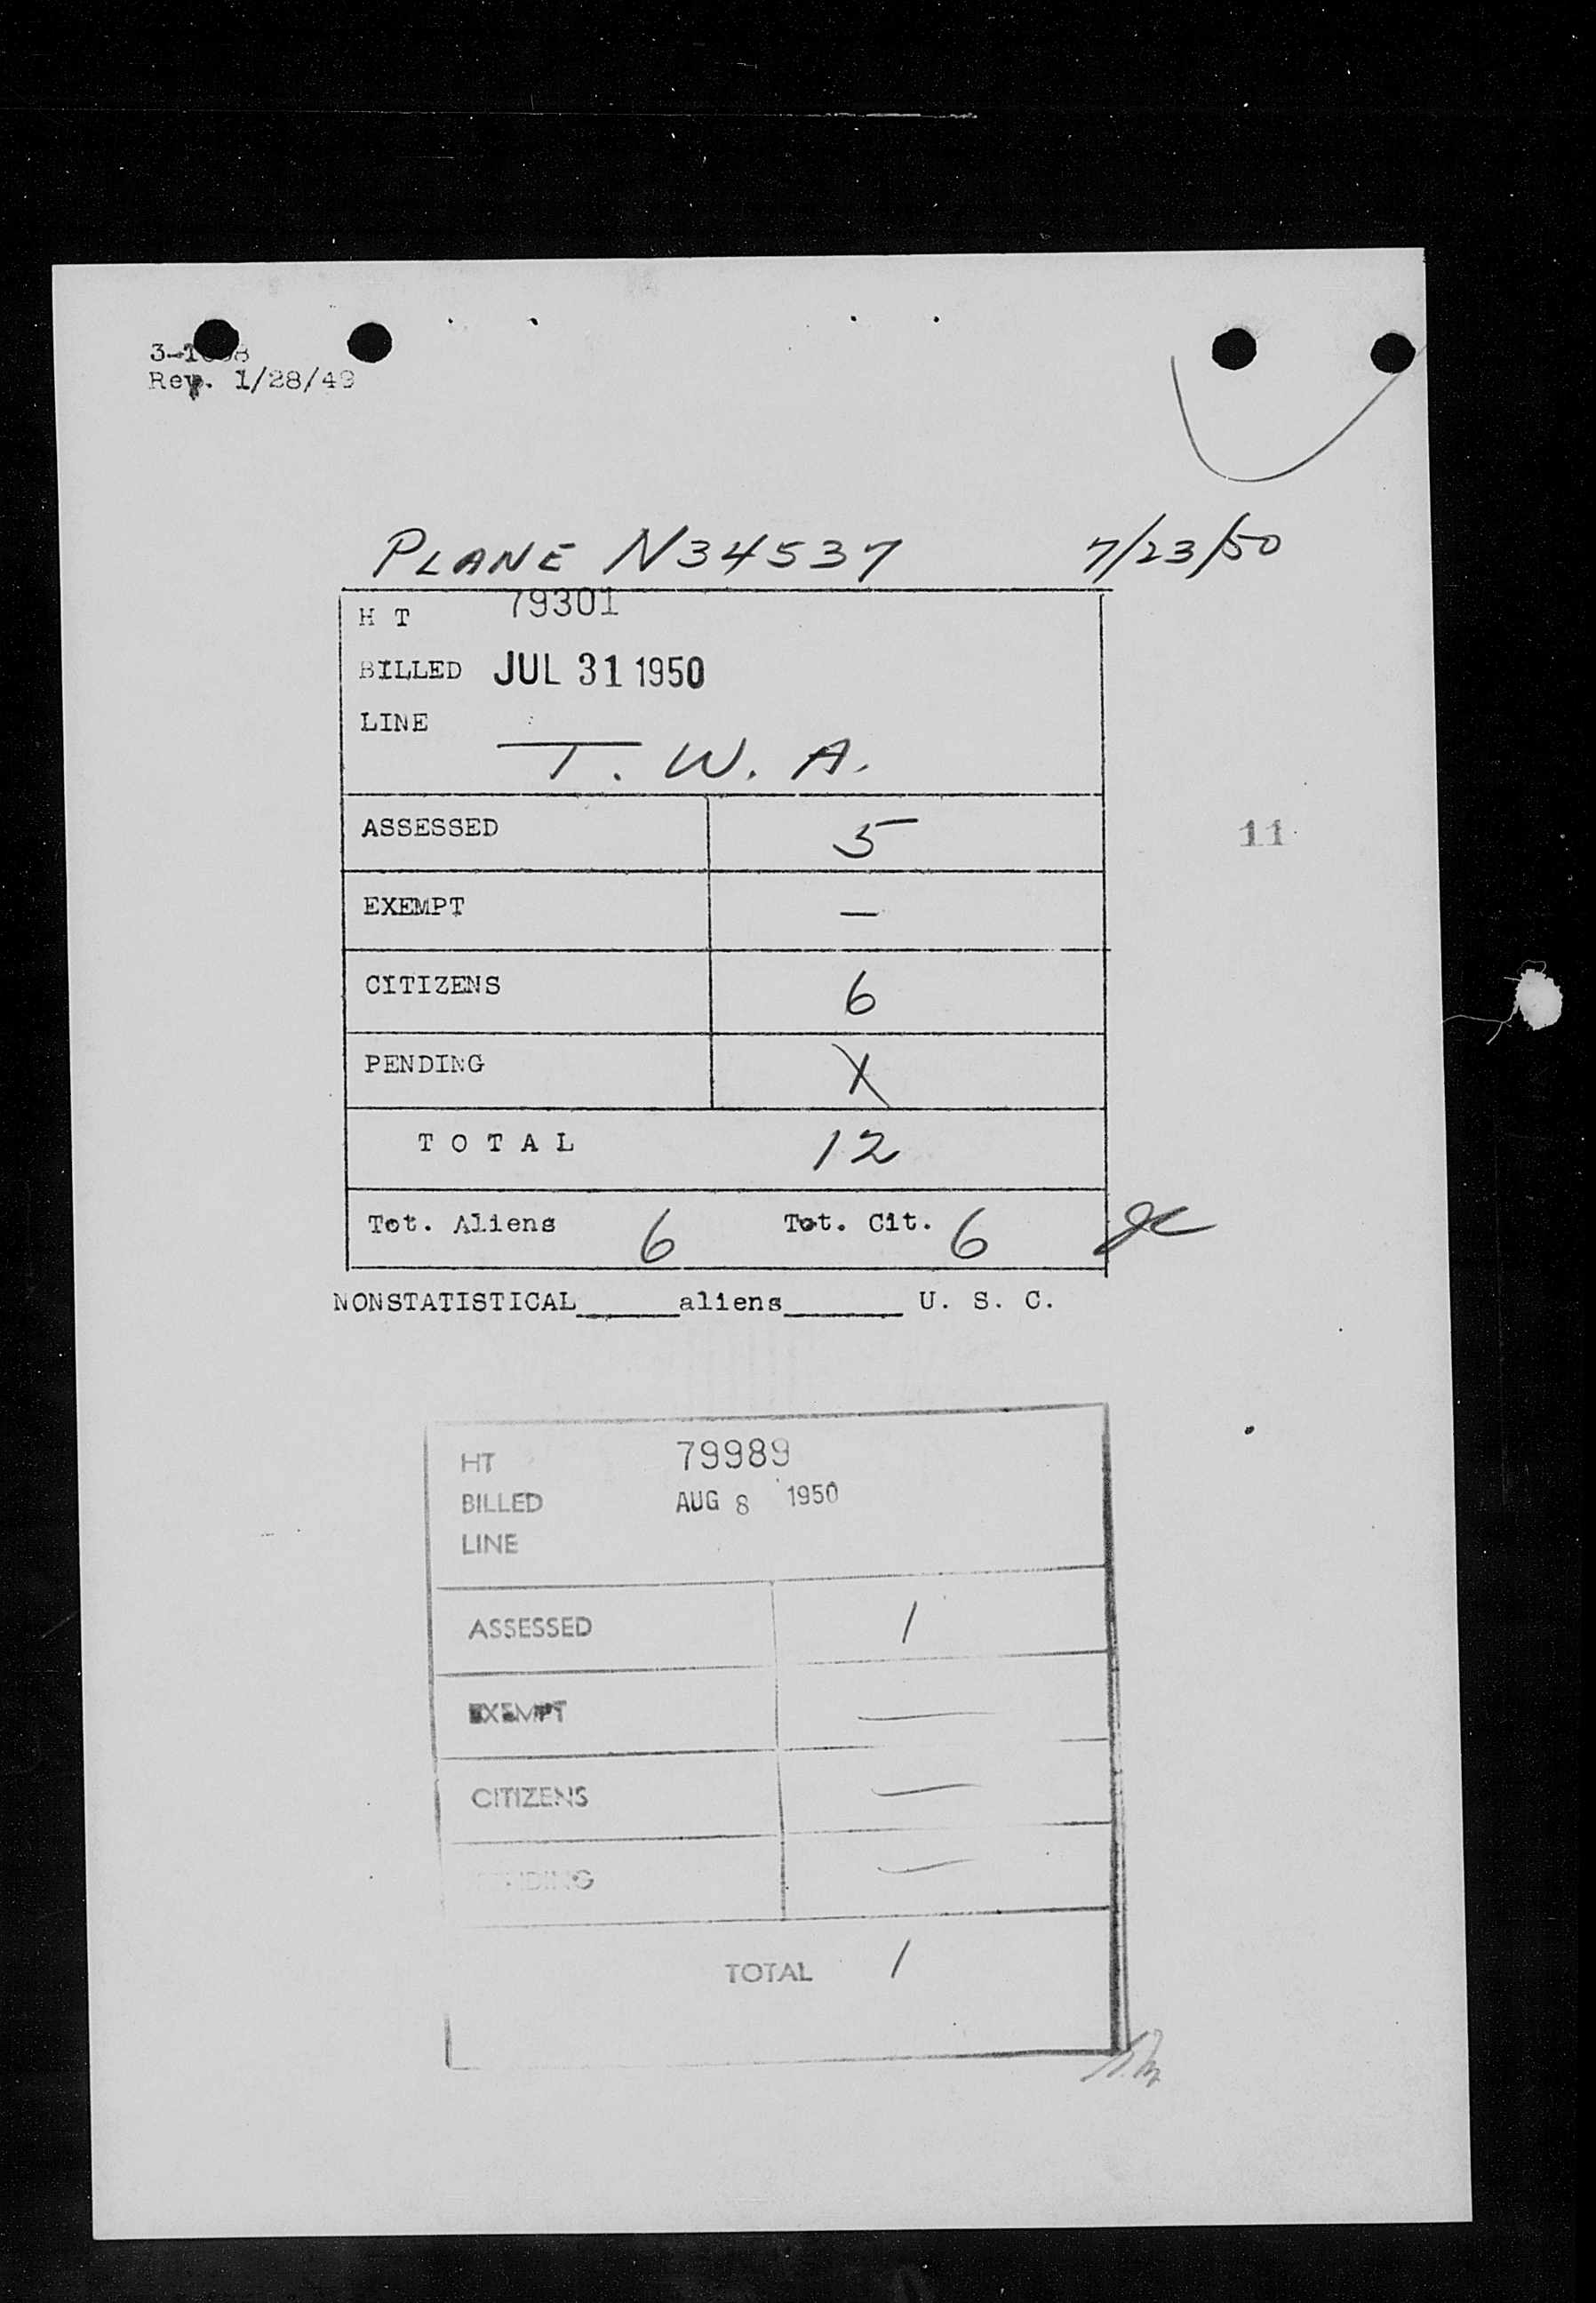 Rev. 1/28/49
PLANE N34537 7/23/50
H T 79301
BILLED JUL 31 1950
LINE
T. W. A.
ASSESSED 5
11
EXEMPT —
CITIZENS 6
PENDING X
T O T A L 12
Tot. Aliens 6 Tot. Cit. 6
NONSTATISTICAL______aliens_______ U. S. C.
HT 79989
BILLED AUG 8 1950
LINE
ASSESSED 1
EXEMPT —
CITIZENS —
PENDING —
TOTAL 1